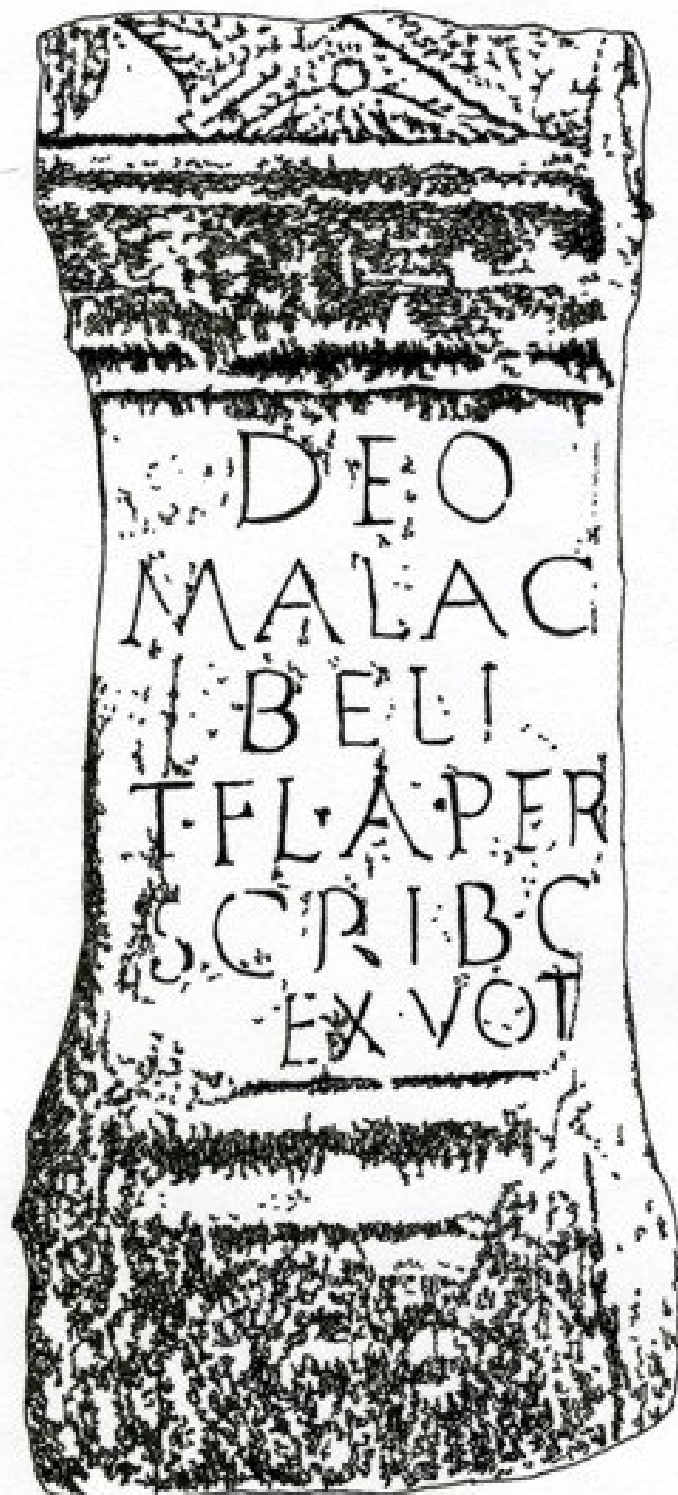 DEO
MALAC
BELI
T·FL·A·PER
SCRIBC
EX·VOT